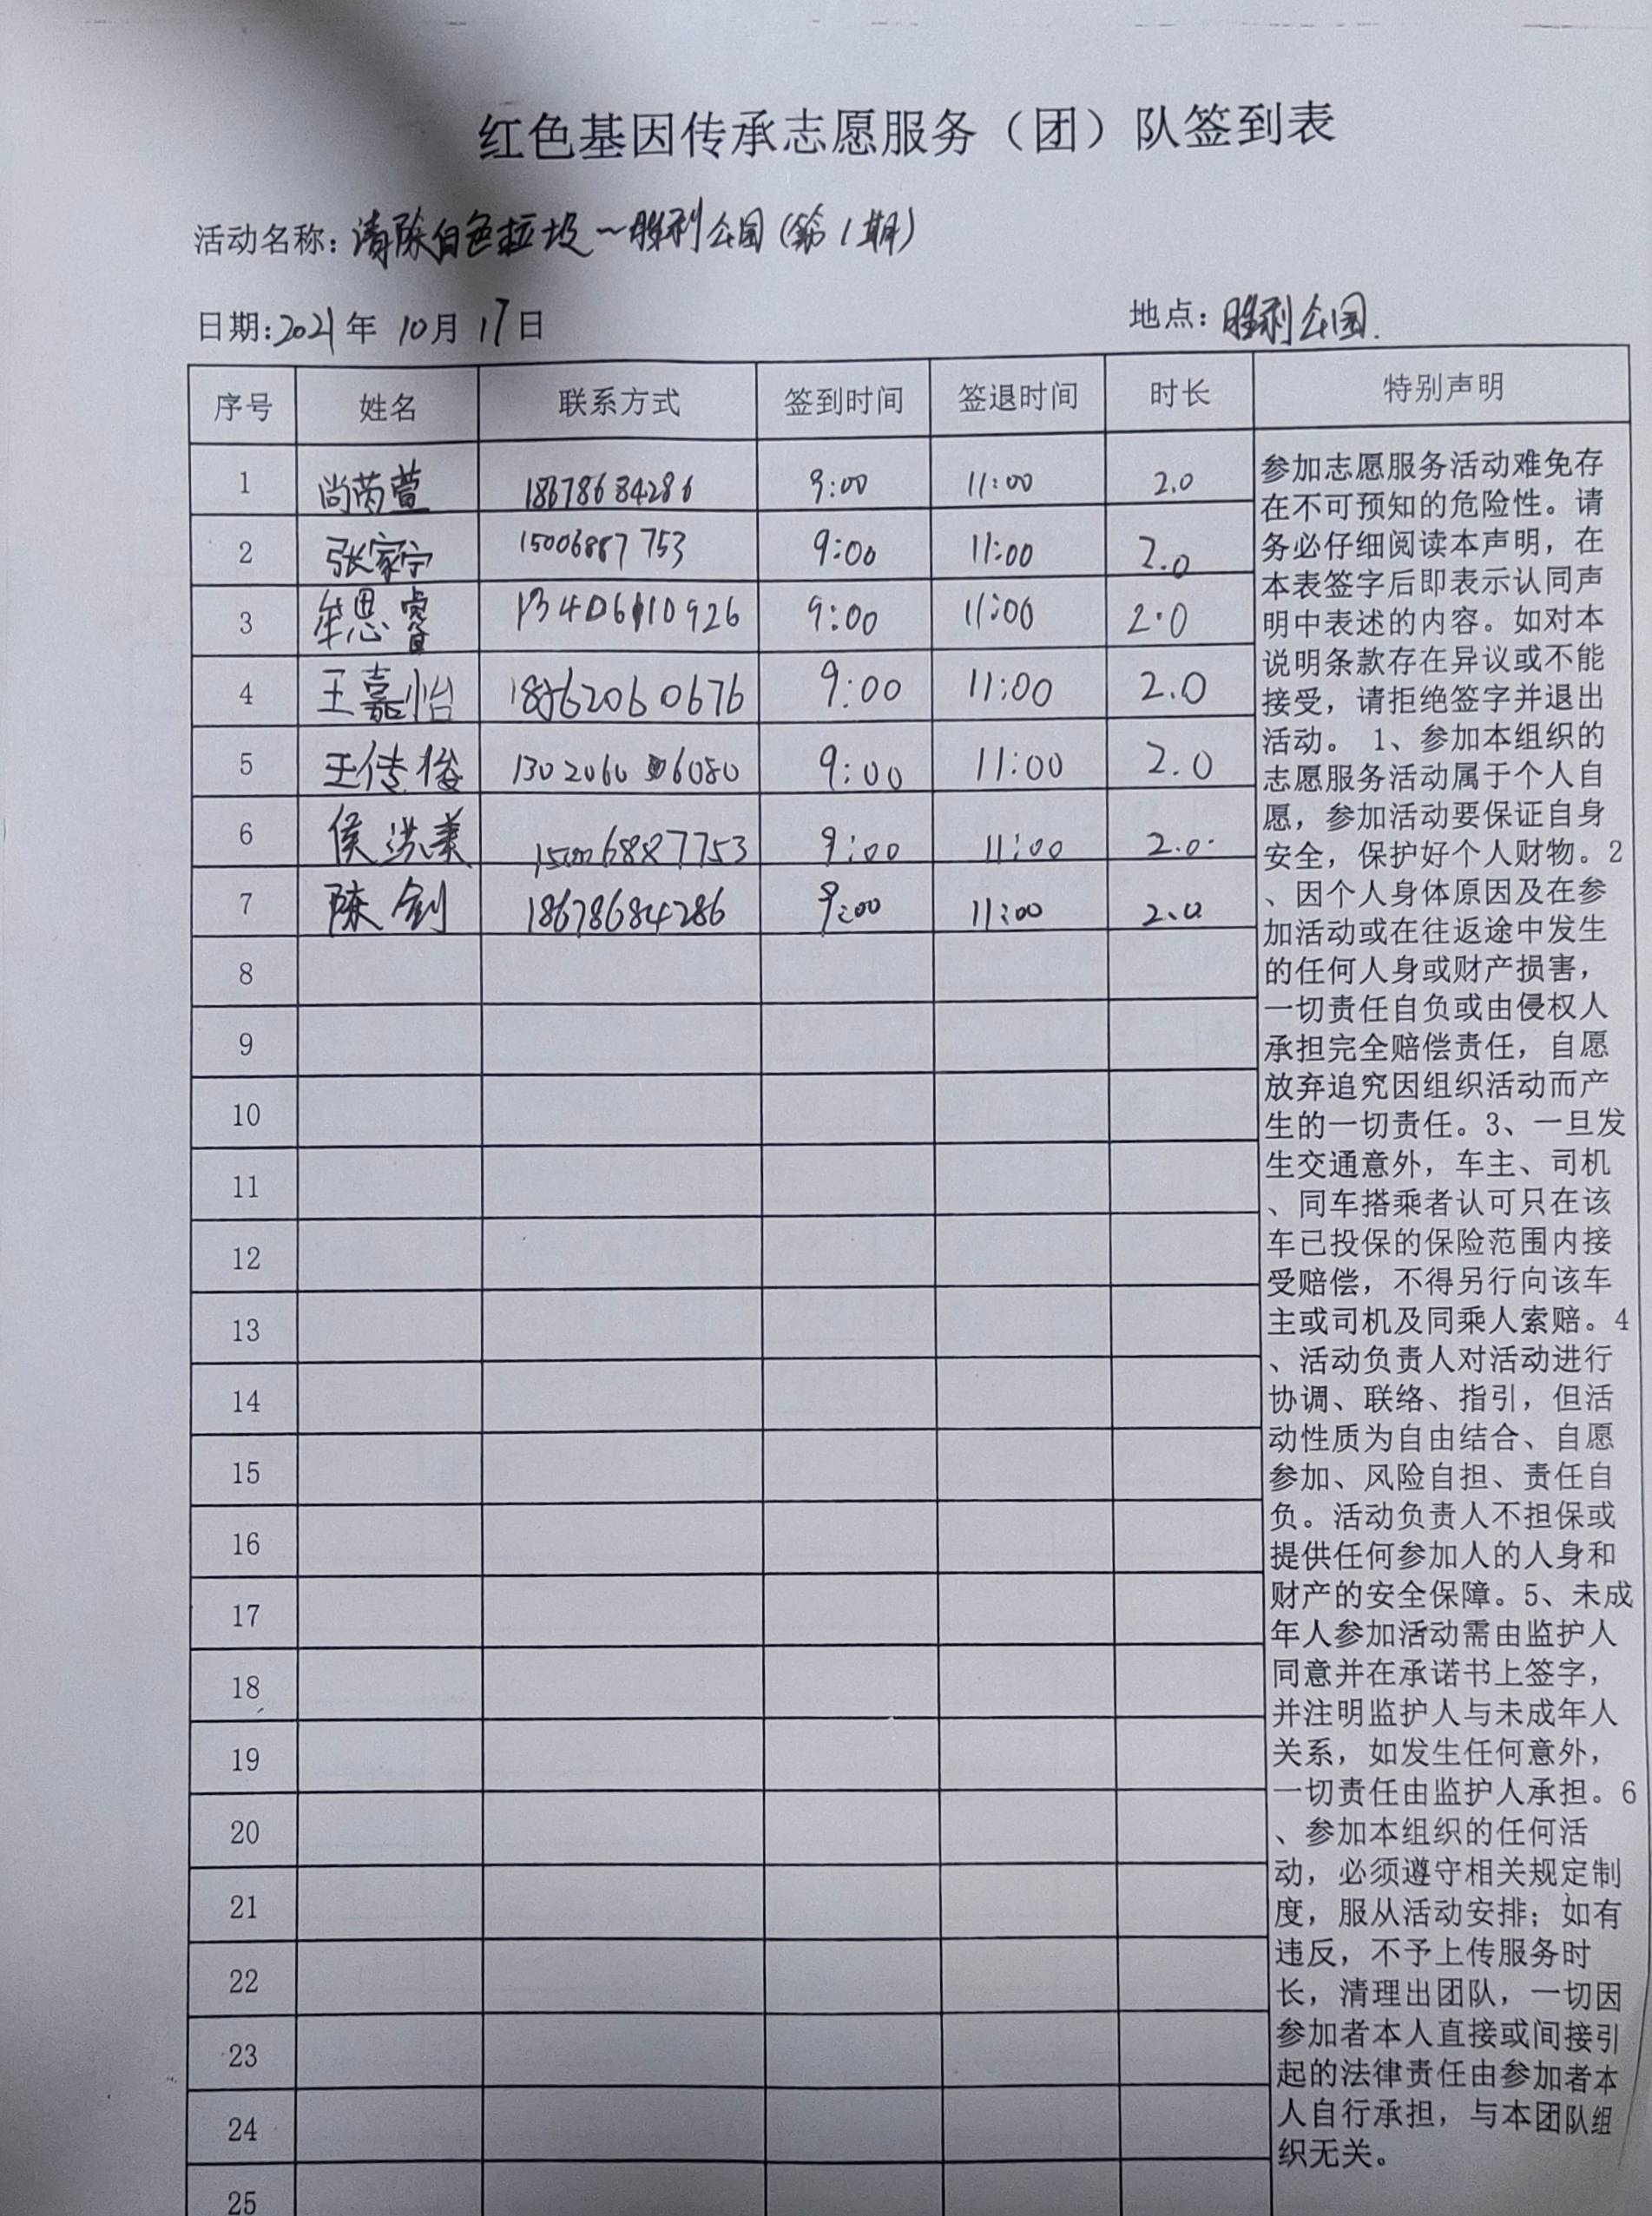 红色基因传承志愿服务（团）队签到表
活动名称：清除白色垃圾~胜利公园（第1期）
日期：2021年 10月 17日 地点：胜利公园.
序号 姓名 联系方式 签到时间 签退时间 时长 特别声明
1 尚芮萱 18678684286 9:00 11:00 2.0
2 张家宁 15006887753 9:00 11:00 2.0
3 牟思睿 13406110926 9:00 11:00 2.0
4 王嘉怡 9:00 11:00 2.0
5 王传俊 9:00 11:00 2.0
6 侯洪美 15006887753 9:00 11:00 2.0
7 陈剑 18678684286 9:00 11:00 2.0
8
9
10
11
12
13
14
15
16
17
18
19
20
21
22
23
24
25
参加志愿服务活动难免存
在不可预知的危险性。请
务必仔细阅读本声明，在
本表签字后即表示认同声
明中表述的内容。如对本
说明条款存在异议或不能
接受，请拒绝签字并退出
活动。 1、参加本组织的
志愿服务活动属于个人自
愿，参加活动要保证自身
安全，保护好个人财物。2
、因个人身体原因及在参
加活动或在往返途中发生
的任何人身或财产损害，
一切责任自负或由侵权人
承担完全赔偿责任，自愿
放弃追究因组织活动而产
生的一切责任。3、一旦发
生交通意外，车主、司机
、同车搭乘者认可只在该
车已投保的保险范围内接
受赔偿，不得另行向该车
主或司机及同乘人索赔。4
、活动负责人对活动进行
协调、联络、指引，但活
动性质为自由结合、自愿
参加、风险自担、责任自
负。活动负责人不担保或
提供任何参加人的人身和
财产的安全保障。5、未成
年人参加活动需由监护人
同意并在承诺书上签字，
并注明监护人与未成年人
关系，如发生任何意外，
一切责任由监护人承担。6
、参加本组织的任何活
动，必须遵守相关规定制
度，服从活动安排；如有
违反，不予上传服务时
长，清理出团队，一切因
参加者本人直接或间接引
起的法律责任由参加者本
人自行承担，与本团队组
织无关。